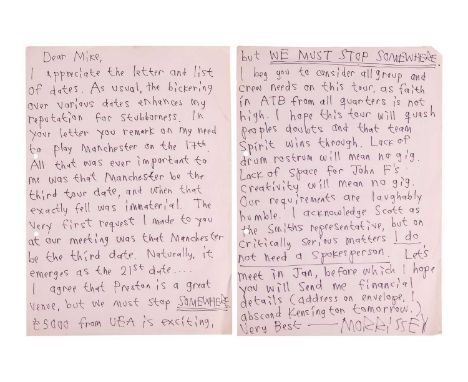 Dear Mike,
I appreciate the letter and list
of dates. As usual, the bickering
over various dates enhances my
reputation for stubborness. In
your letter you remark on my need
to play Manchester on the 17th.
All that was ever important to
me was that Manchester be the
third tour date, and when that
exactly fell was immaterial. The
very first request I made to you
at our meeting was that Manchester
be the third date. Naturally, it
emerges as the 21st date....
I agree that Preston is a great
venue, but we must stop SOMEWHERE.
£5000 from UEA is exciting,
but WE MUST STOP SOMEWHERE.
I beg you to consider all group and
crew needs on this tour, as faith
in ATB from all quarters is not
high. I hope this tour will quash
peoples doubts and that team
Spirit wins through. Lack of
drum rostrum will mean no gig.
Lack of space for John F's
Creativity will mean no gig.
Our requirements are laughably
humble. I acknowledge Scott as
the Smiths representative, but on
Critically serious matters I do
not need a spokesperson. Let's
meet in Jan, before which I hope
you will send me financial
details (address on envelope, I
abscond Kensington tomorrow.)
Very Best — MORRISSEY